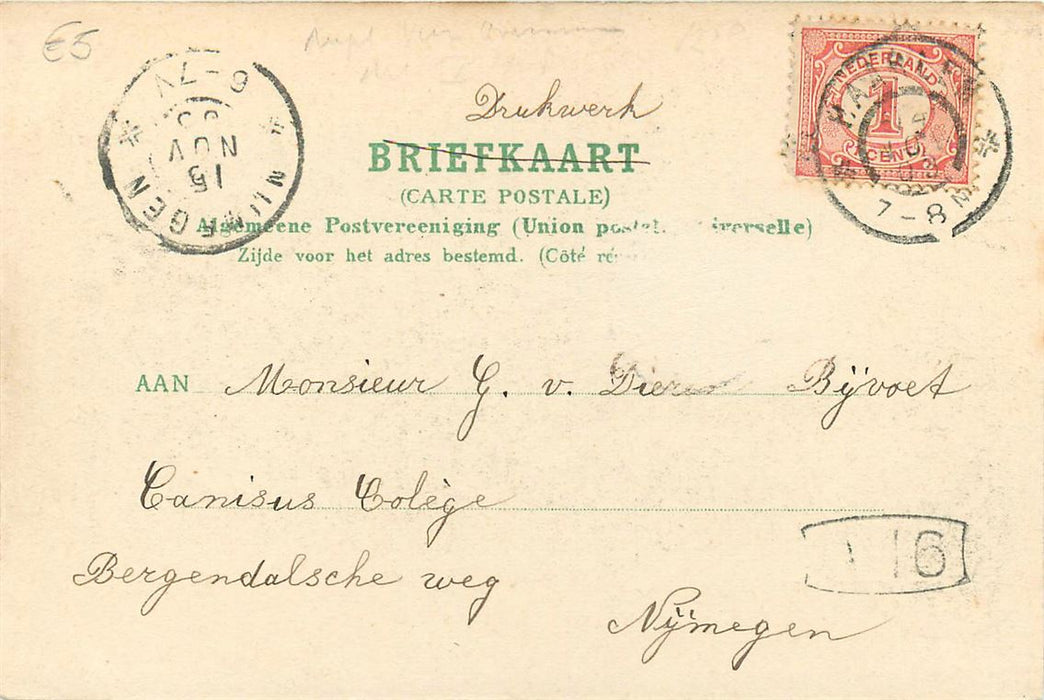 €5
Drukwerk
BRIEFKAART
(CARTE POSTALE)
Algemeene Postvereeniging (Union postal. verselle)
Zijde voor het adres bestemd. (Côté ré
NEDERLAND
1
CENT
7-8
NIJMEGEN
15
NOV
6-7V
AAN Monsieur G. v. Dieren Bÿvoet
Canisus Colège
Bergendalsche weg
Nÿmegen
16